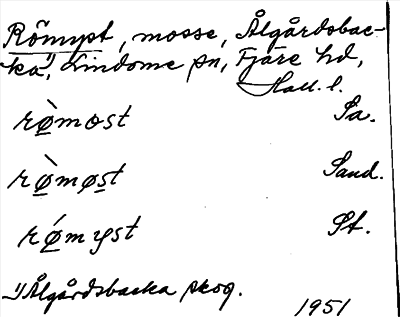 Römypt, mosse, Ålgårdsbac-
ka¹⁾, Lindome sn, Fjäre hd,
Hall. l.
rø̀most Sa.
rø̀møst Sand.
rǿmyst St.
¹⁾ Ålgårdsbacka skog.
1951